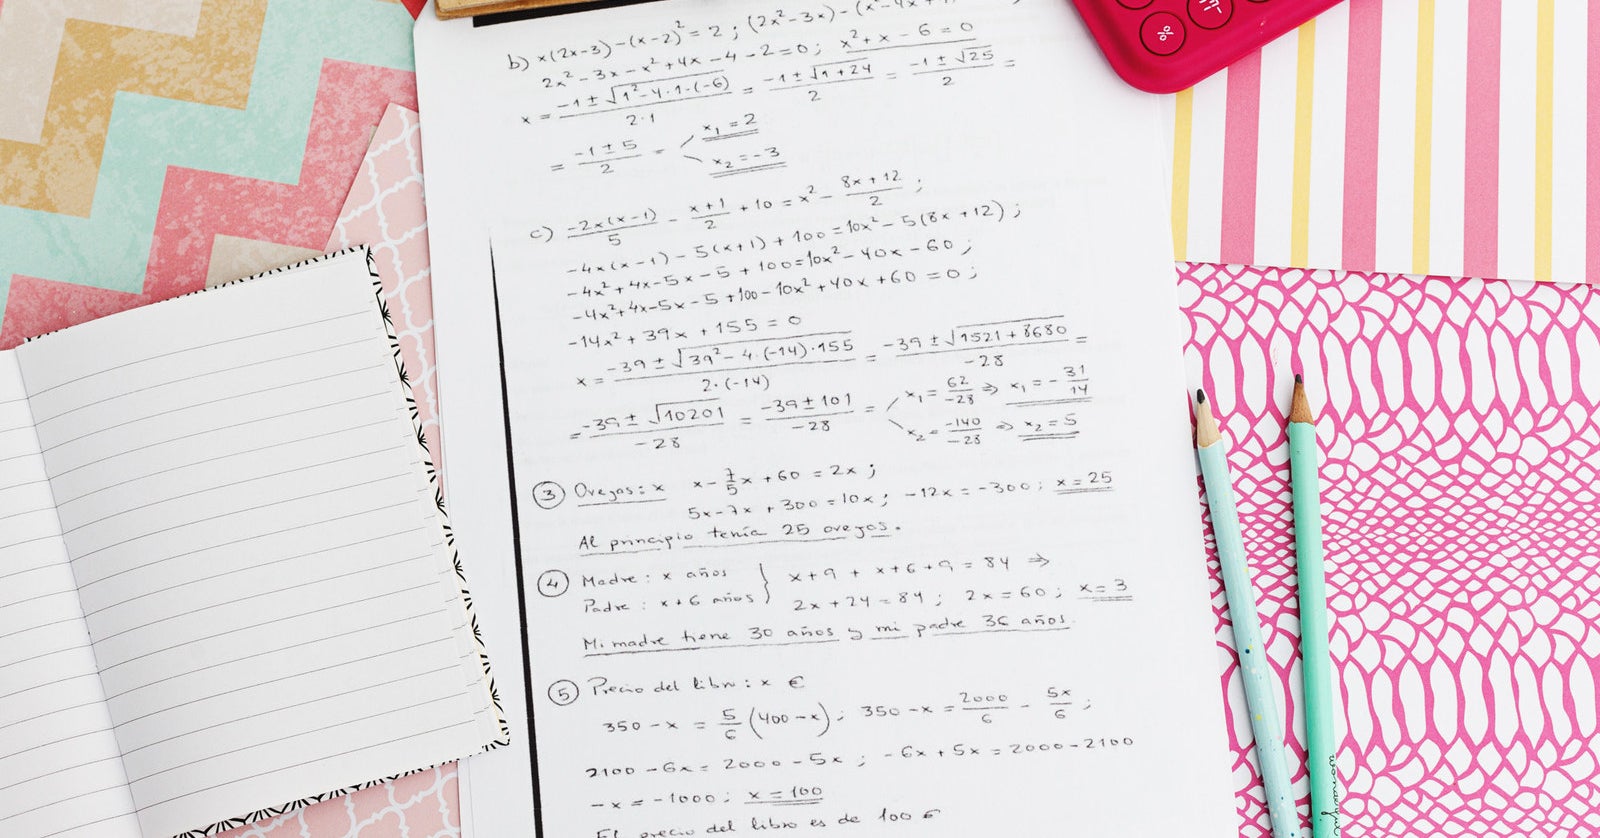 b) x(2x-3)-(x-2)² = 2 ; (2x²-3x)-(x²-4x+
2x²-3x-x²+4x-4-2=0 ; x²+x-6=0
x = (-1±√(1²-4·1·(-6)))/(2·1) = (-1±√(1+24))/2 = (-1±√25)/2 =
= (-1±5)/2 = x₁=2
x₂=-3
c) (-2x(x-1))/5 - (x+1)/2 + 10 = x² - (8x+12)/2 ;
-4x(x-1)-5(x+1)+100=10x²-5(8x+12) ;
-4x²+4x-5x-5+100=10x²-40x-60 ;
-4x²+4x-5x-5+100-10x²+40x+60=0 ;
-14x²+39x+155=0
x = (-39±√(39²-4·(-14)·155))/(2·(-14)) = (-39±√(1521+8680))/(-28) =
= (-39±√10201)/(-28) = (-39±101)/(-28) = x₁=62/(-28) ⇒ x₁=-31/14
x₂=(-140)/(-28) ⇒ x₂=5
③ Ovejas: x x-7/5x+60=2x ;
5x-7x+300=10x ; -12x=-300 ; x=25
Al principio tenía 25 ovejas.
④ Madre: x años } x+9+x+6+9=84 ⇒
Padre: x+6 años } 2x+24=84 ; 2x=60 ; x=3
Mi madre tiene 30 años y mi padre 36 años.
⑤ Precio del libro: x €
350-x = 5/6(400-x) ; 350-x = 2000/6 - 5x/6 ;
2100-6x=2000-5x ; -6x+5x=2000-2100
-x=-1000 ; x=100
El precio del libro es de 100 €
%